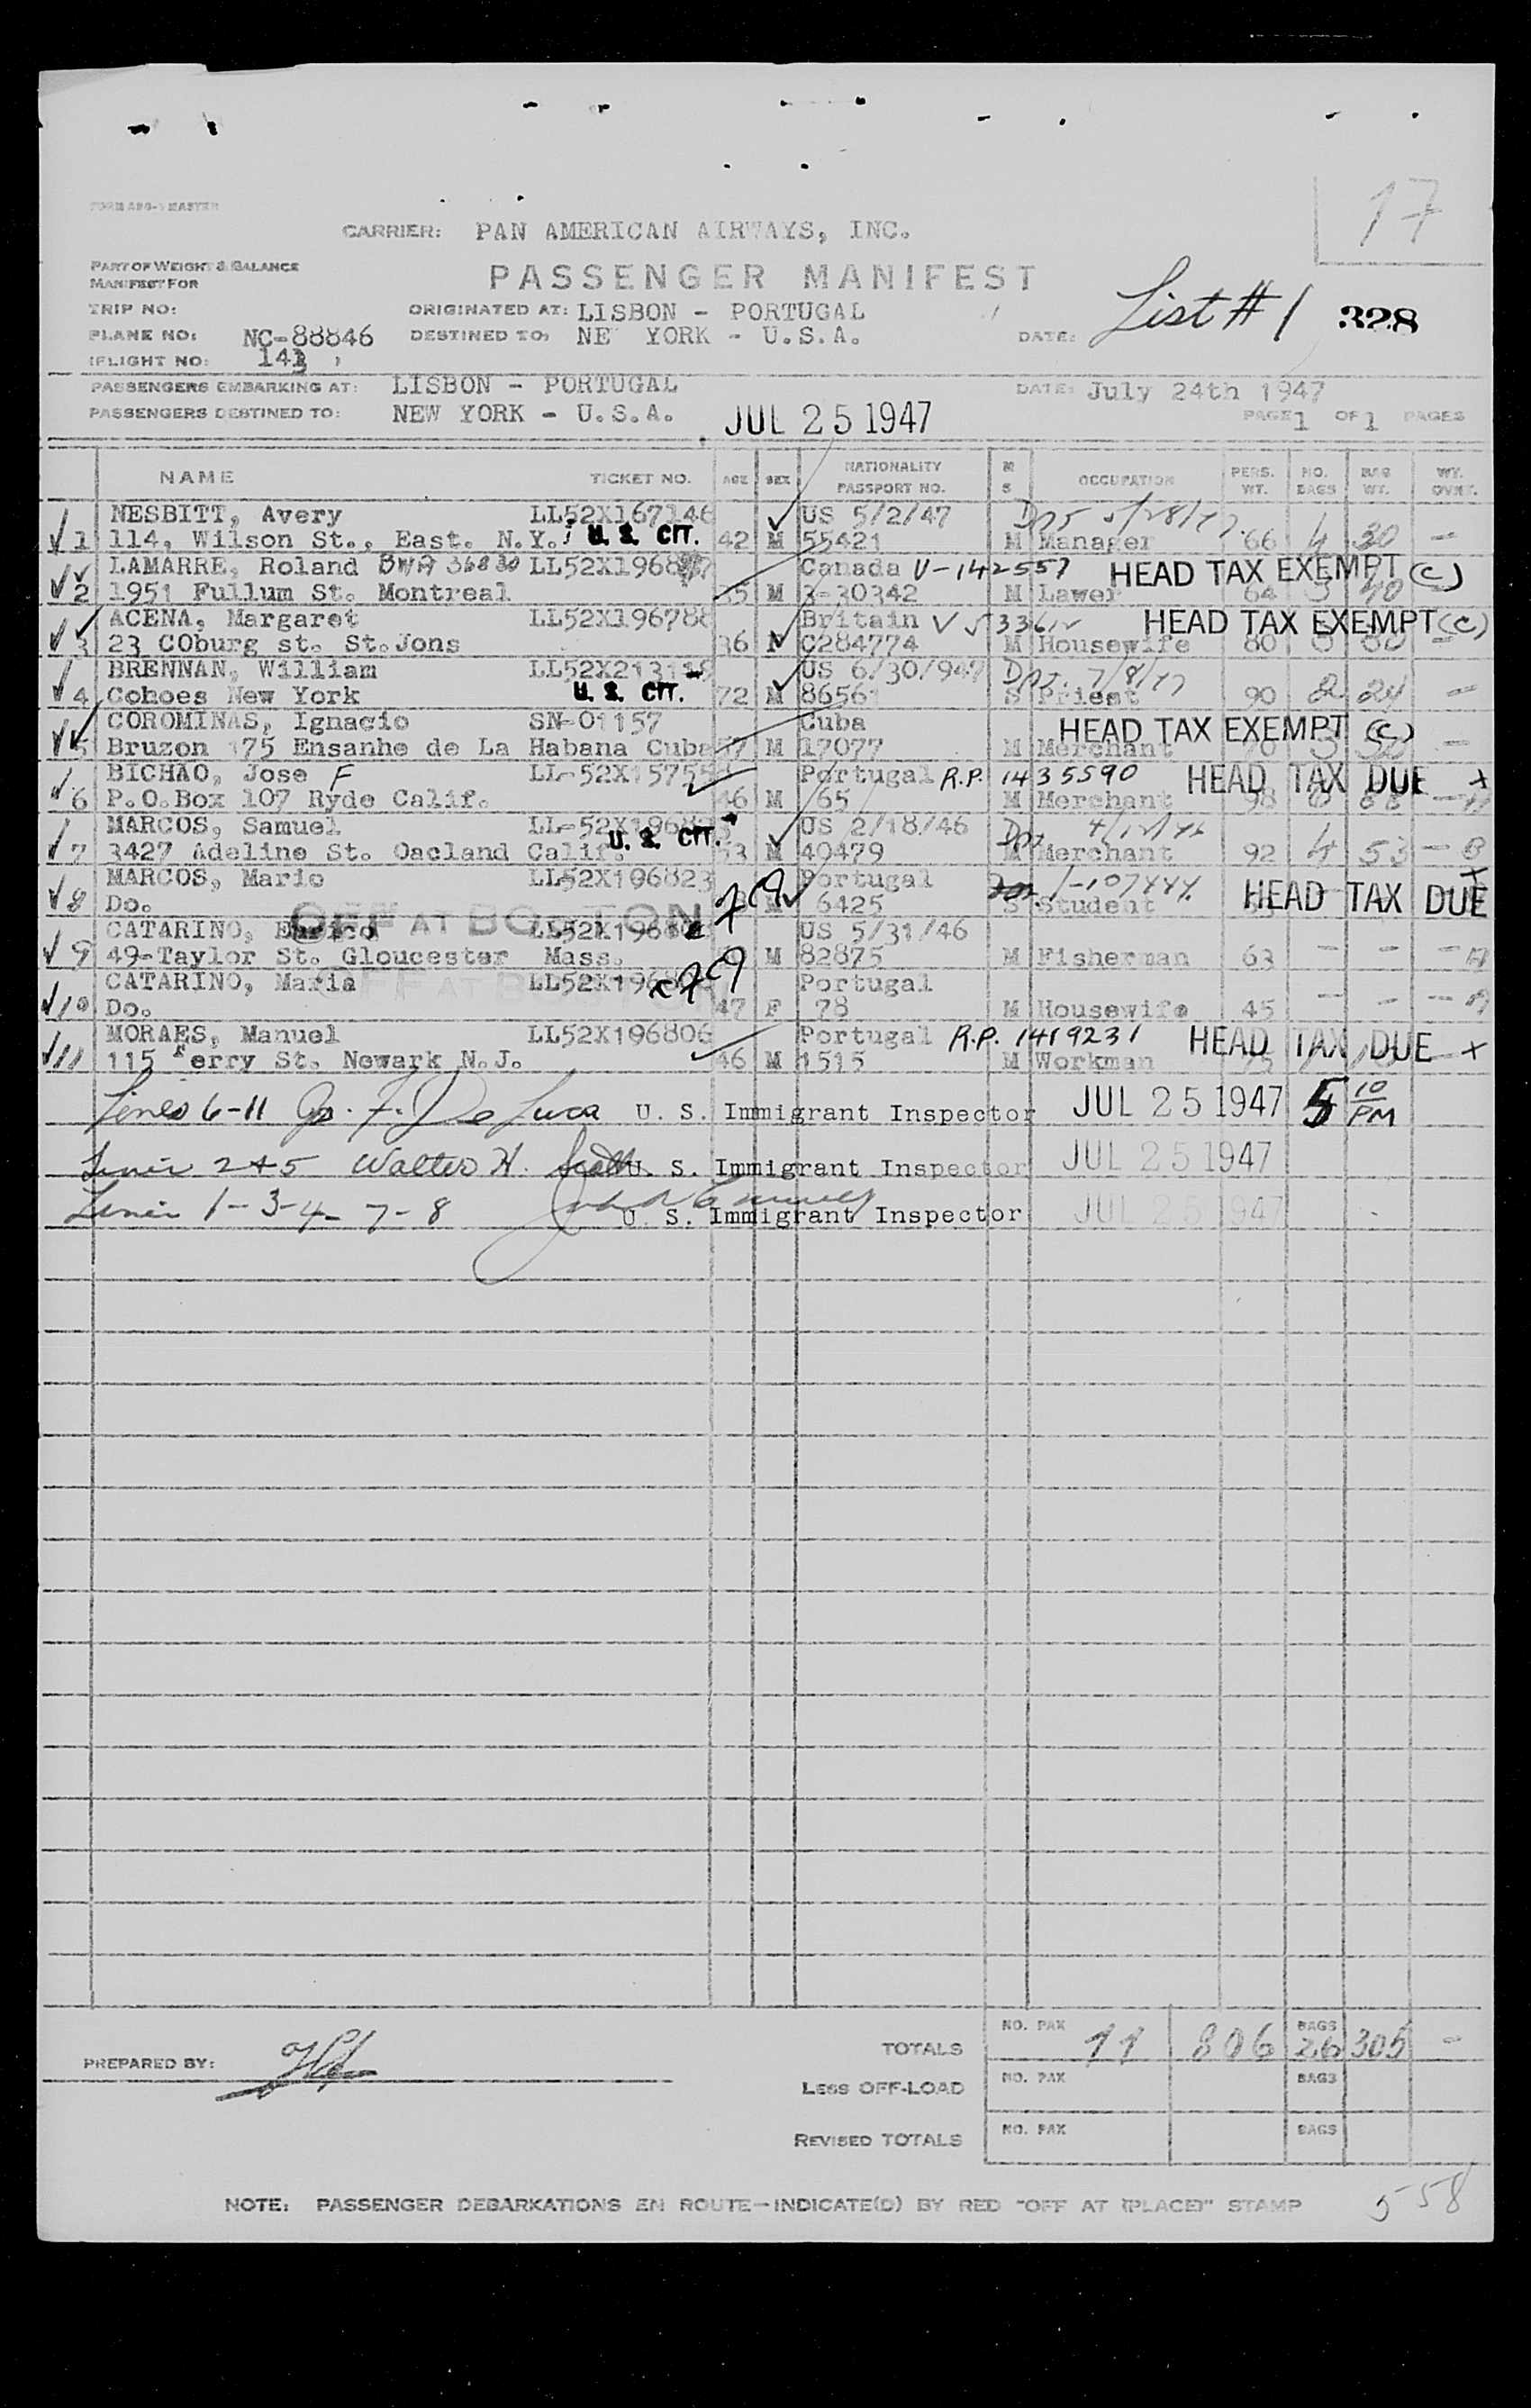 17
FORM ABO-1 MASTER
CARRIER: PAN AMERICAN AIRWAYS, INC.
PART OF WEIGHT & BALANCE
MANIFEST FOR
PASSENGER MANIFEST
TRIP NO:
ORIGINATED AT: LISBON - PORTUGAL
List # 1 328
PLANE NO: NC-88846
DESTINED TO: NE YORK - U.S.A.
DATE:
FLIGHT NO: 143
PASSENGERS EMBARKING AT: LISBON - PORTUGAL
DATE: July 24th 1947
PASSENGERS DESTINED TO: NEW YORK - U.S.A.
JUL 25 1947
PAGE 1 OF 1 PAGES
NAME TICKET NO. AGE SEX NATIONALITY PASSPORT NO. M S OCCUPATION PERS. WT. NO. BAGS BAG WT. WY. OVNT.
NESBITT, Avery LL52X167146 US 5/2/47
1 114, Wilson St., East. N.Y. U. S. CIT. 42 M 55421 M Manager 66 4 30 -
LAMARRE, Roland BWA 36830 LL52X1968 Canada V-142557 HEAD TAX EXEMPT (C)
2 1951 Fullum St. Montreal 35 M 3-30342 M Lawer 64 40
ACENA, Margaret LL52X196788 Britain HEAD TAX EXEMPT (C)
3 23 COburg st. St.Jons 36 C284774 M Housewife 80
BRENNAN, William LL52X213118 US 6/30/947
4 Cohoes New York U. S. CIT. 72 M 86561 S Priest 90 2 24 -
COROMINAS, Ignacio SN-01157 Cuba HEAD TAX EXEMPT (C)
5 Bruzon 175 Ensanhe de La Habana Cuba 57 M 17077 M Merchant
BICHAO, Jose F LL-52X15755 Portugal R.P. 1435590 HEAD TAX DUE +
6 P.O.Box 107 Ryde Calif. 46 M 65 M Merchant 98
MARCOS, Samuel LL-52X19682 US 2/18/46
7 3427 Adeline St. Oacland Calif. U. S. CIT. 53 M 40479 M Merchant 92 4 53 -
MARCOS, Mario LL52X196823 Portugal
8 Do. M 6425 S Student HEAD TAX DUE
OFF AT BOSTON
CATARINO, LL52X1968 US 5/31/46
9 49-Taylor St. Gloucester Mass. M 82875 M Fisherman 63 - - -
OFF AT
CATARINO, Maria LL52X1968 Portugal
10 Do. 47 F 78 M Housewife 45 - - -
MORAES, Manuel LL52X196806 Portugal R.P. 1419231 HEAD TAX DUE +
11 115 Ferry St. Newark N.J. 46 M 1515 M Workman 75
Lines 6-11 F. De Luca U. S. Immigrant Inspector JUL 25 1947 5 10 PM
Lines 2+5 Walter H. U. S. Immigrant Inspector JUL 25 1947
Lines 1-3-4-7-8 U. S. Immigrant Inspector JUL 25 1947
PREPARED BY:
TOTALS NO. PAX 11 806 BAGS 26 305 -
LESS OFF-LOAD NO. PAX BAGS
REVISED TOTALS NO. PAX BAGS
NOTE: PASSENGER DEBARKATIONS EN ROUTE-INDICATE(D) BY RED "OFF AT (PLACE)" STAMP
558